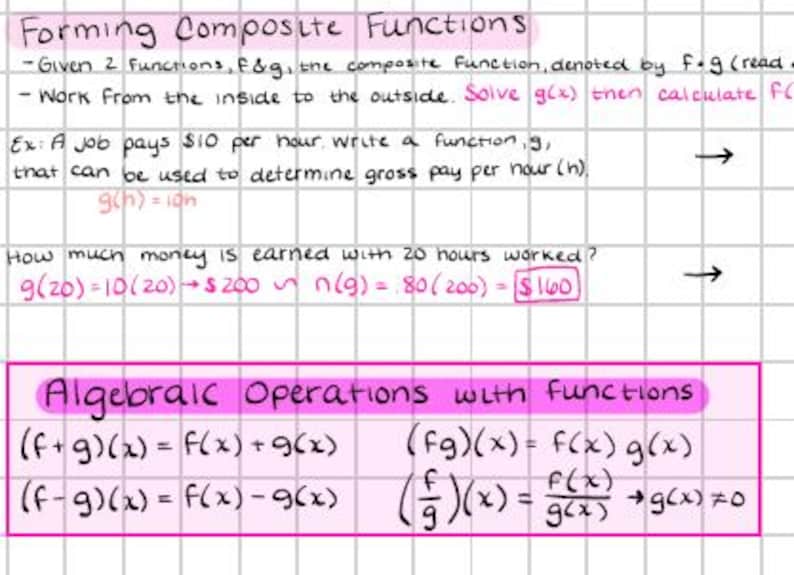 Forming Composite Functions
- Given 2 functions, f & g, the composite function, denoted by f∘g (read
- Work from the inside to the outside. Solve g(x) then calculate f(
Ex: A job pays $10 per hour. Write a function, g,
that can be used to determine gross pay per hour (h). →
g(h) = 10h
How much money is earned with 20 hours worked?
g(20) = 10(20) → $200 ~ n(g) = .80(200) = $160 →
Algebraic Operations with functions
(f+g)(x) = f(x) + g(x)
(fg)(x) = f(x) g(x)
(f-g)(x) = f(x) - g(x)
(f/g)(x) = f(x)/g(x) → g(x) ≠ 0